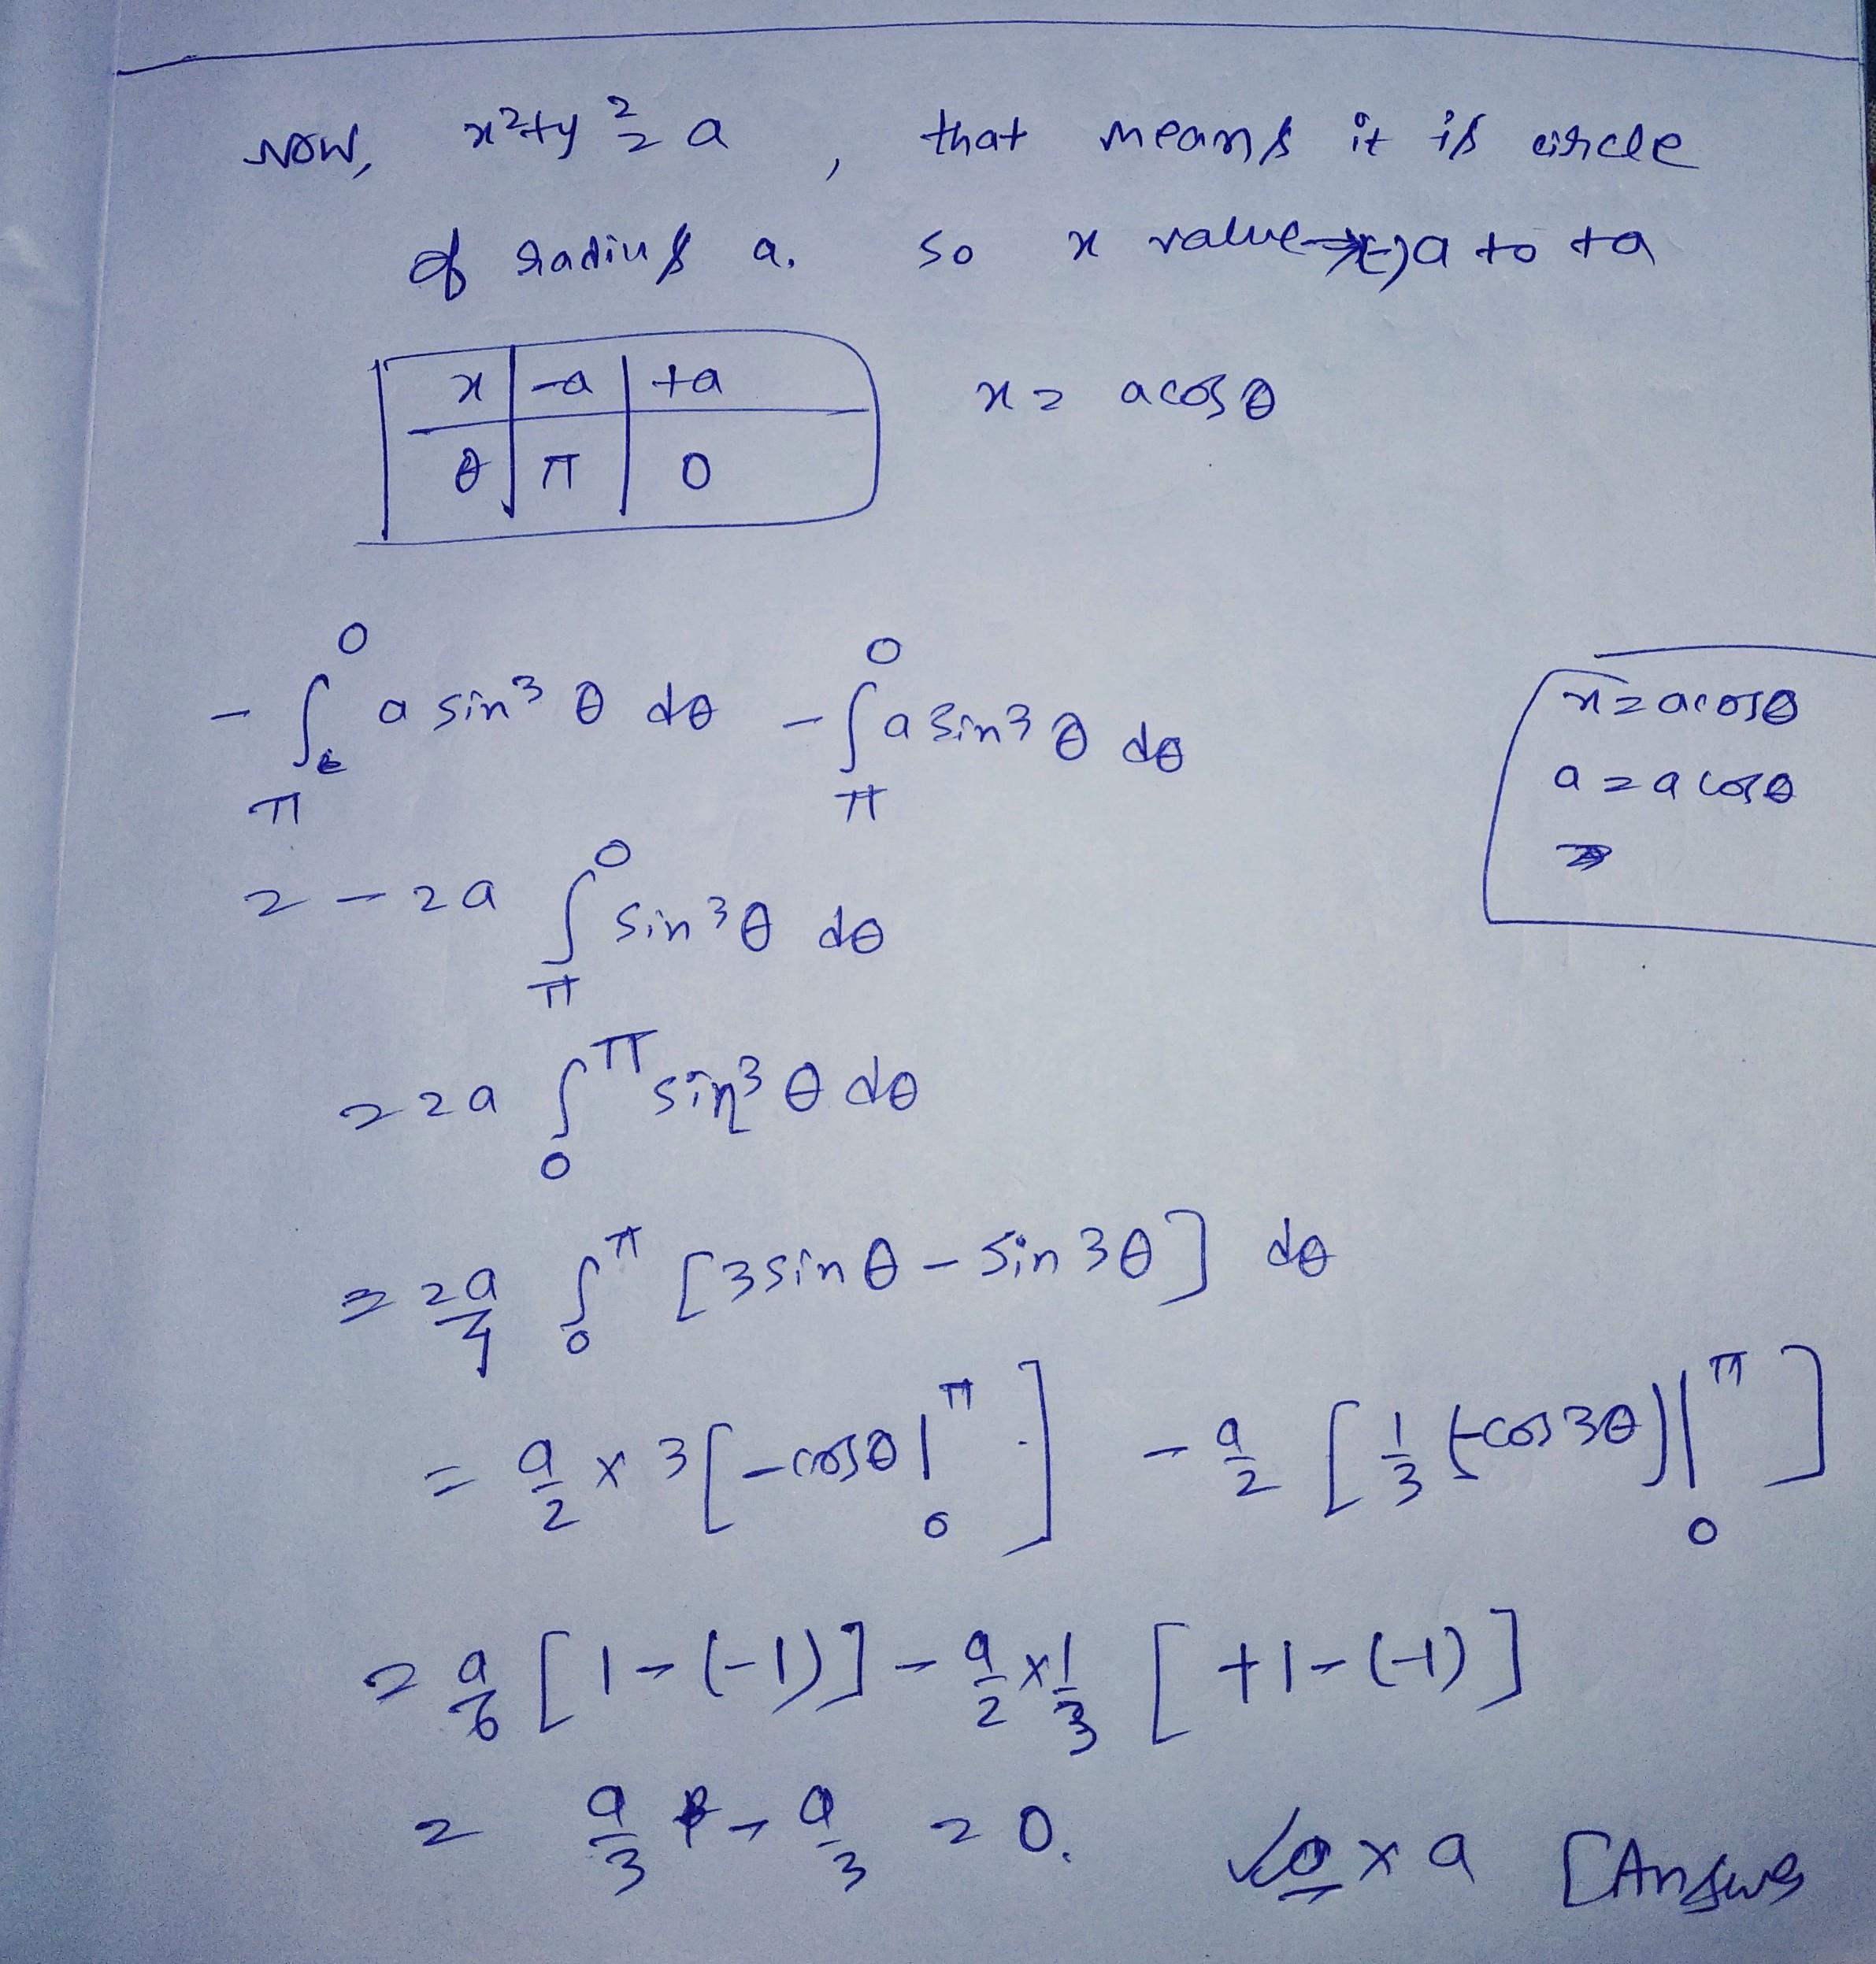 Now, x²+y² = a, that means it is circle
of radius a. so x value → (-)a to +a
x | -a | +a
θ | π | 0
x = a cos θ
- ∫_π^0 a sin³ θ dθ - ∫_π^0 a sin³ θ dθ
x = a cos θ
a = a cos θ
⇒
= -2a ∫_π^0 sin³θ dθ
= 2a ∫_0^π sin³ θ dθ
= 2a/4 ∫_0^π [3 sin θ - sin 3θ] dθ
= a/2 × 3 [-cos θ |_0^π] - a/2 [1/3 (-cos 3θ) |_0^π]
= a/6 [1 - (-1)] - a/2 × 1/3 [+1 - (-1)]
= a/3 - a/3 = 0.
× a [Answe